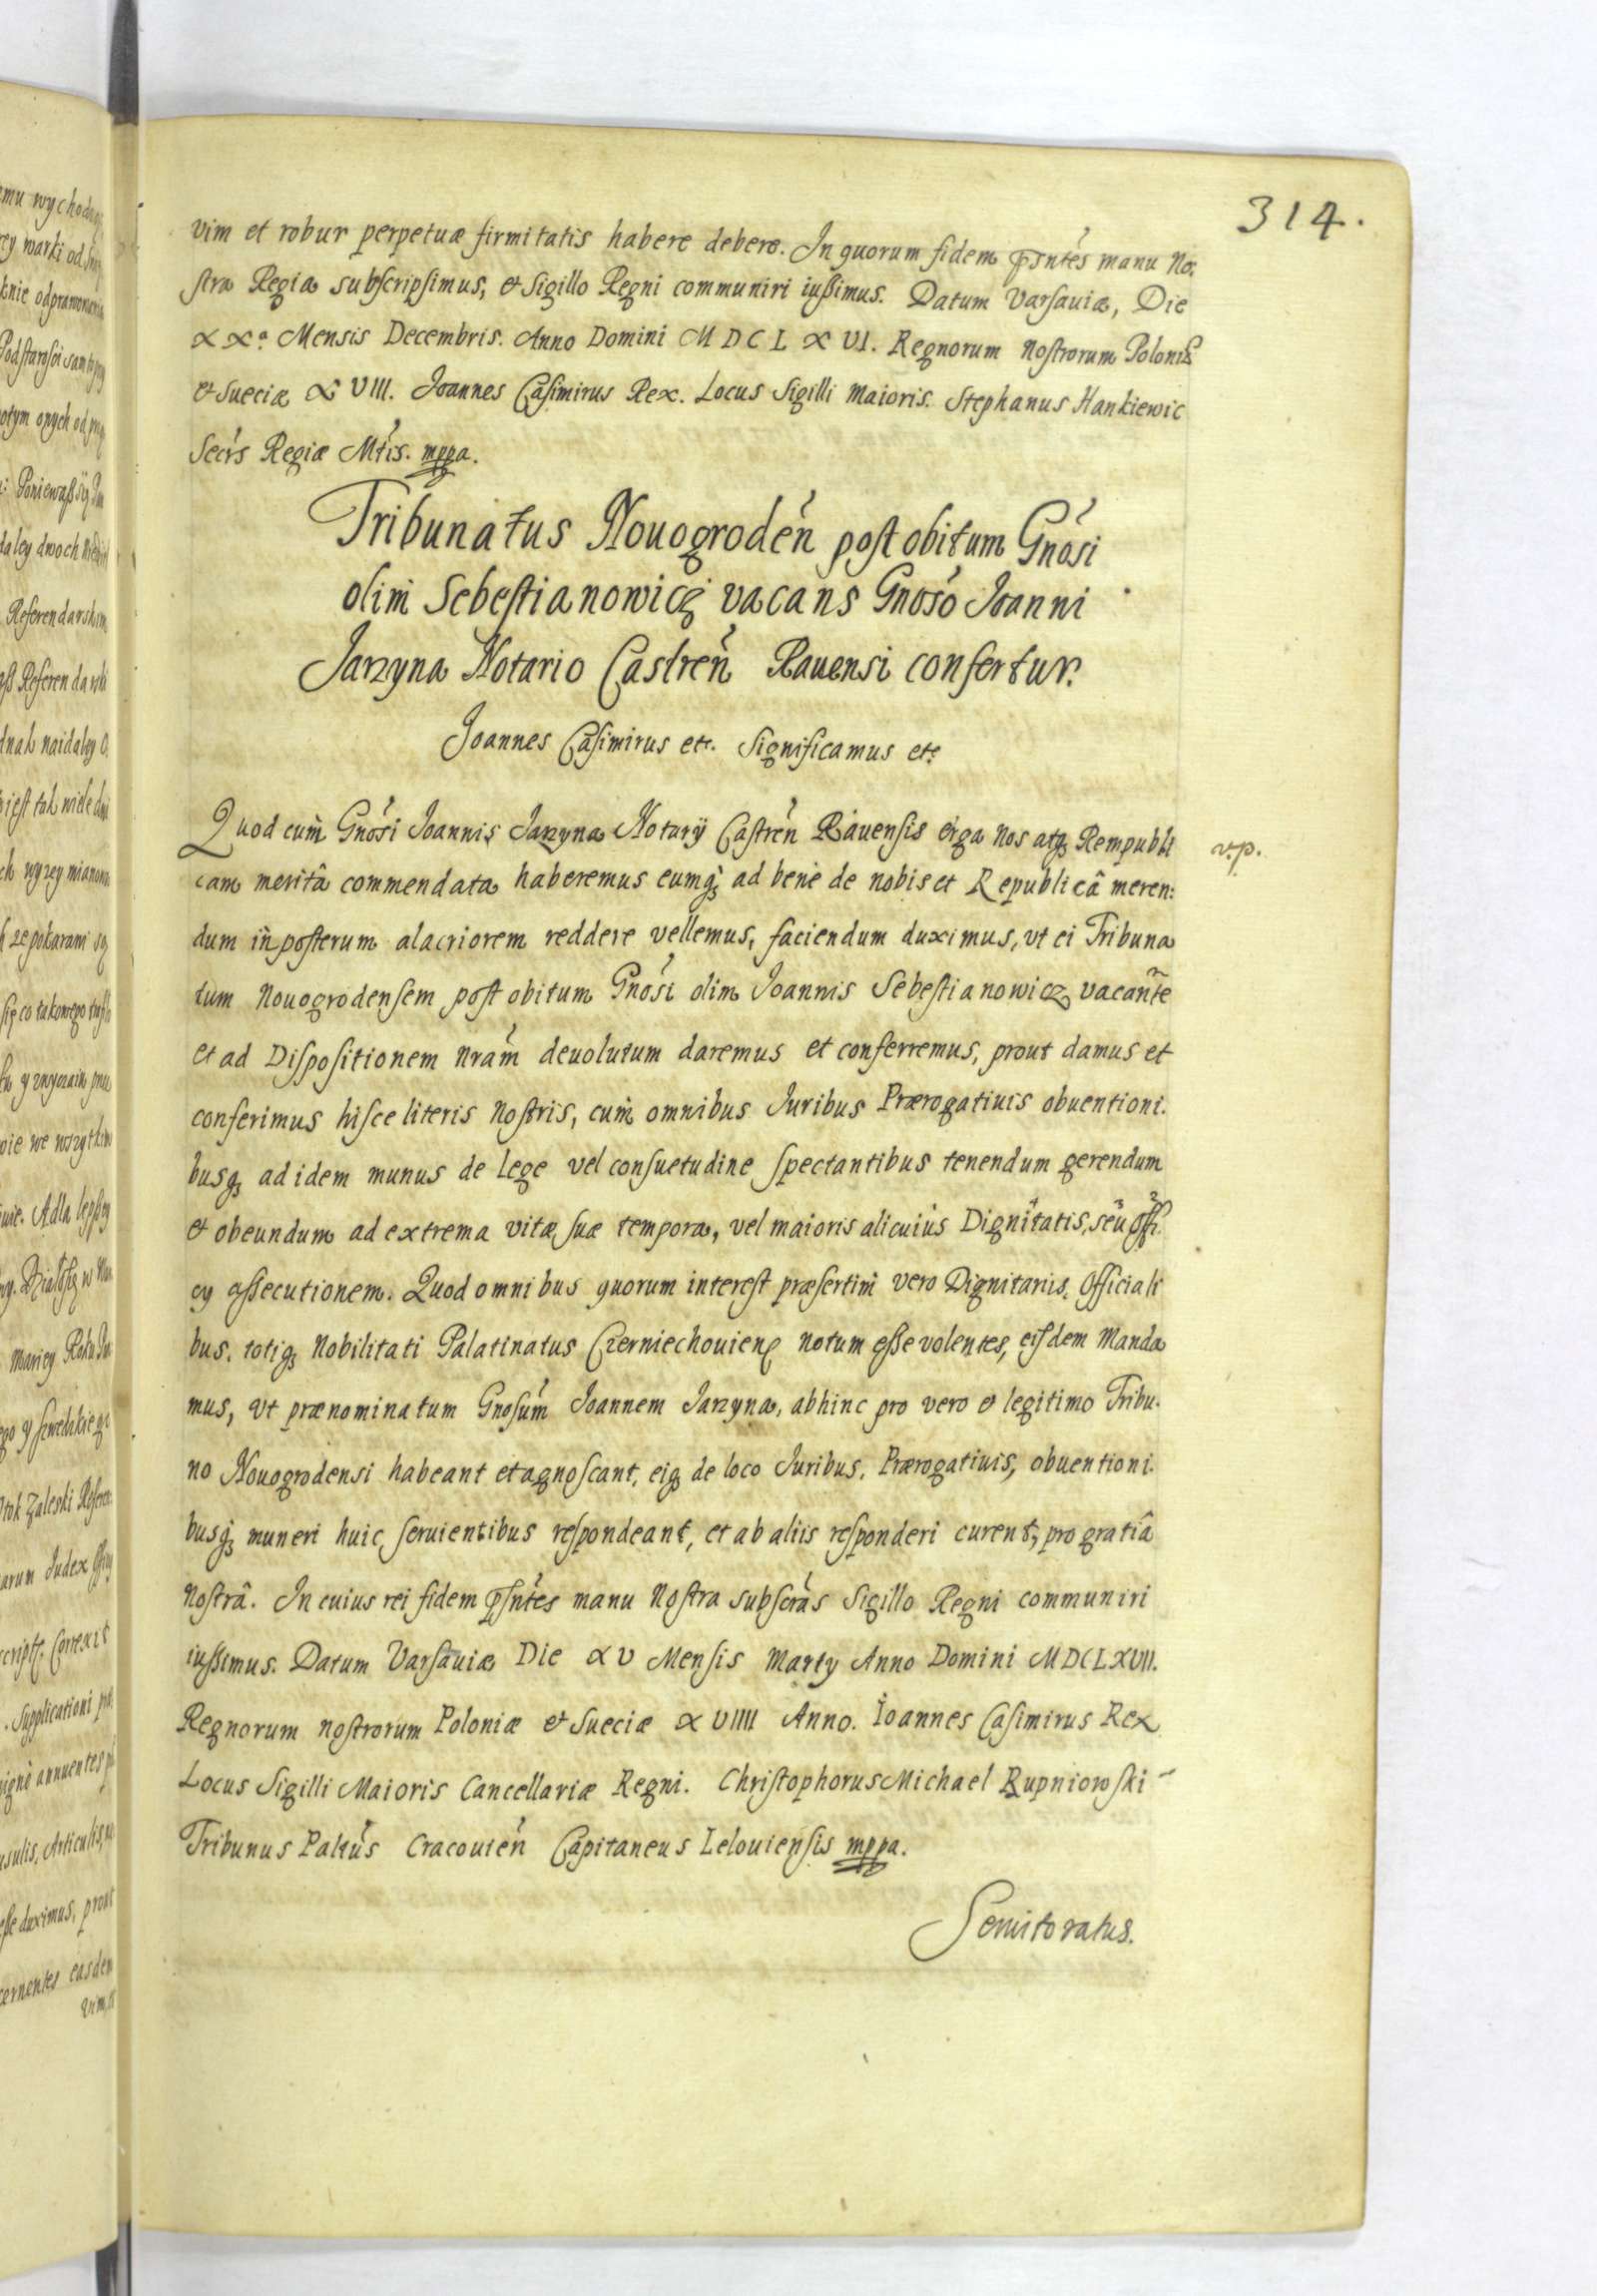 314.
vim et robur perpetuæ firmitatis habere debere. In quorum fidem pñtes manu No:
stra Regia subscripsimus, et Sigillo Regni communiri iussimus. Datum Varsaviæ, Die
XXa. Mensis Decembris. Anno Domini MDCLXVI. Regnorum nostrorum Poloniæ
et Sueciæ XVIII. Joannes Casimirus Rex. Locus Sigilli Maioris. Stephanus Hankiewic
Secrs Regiæ Mtis. mppa.
Tribunatus Nouogroden post obitum Gnosi
olim Sebestianowicz vacans Gnoso Joanni
Jarzyna Notario Castren Rauensi confertur.
Joannes Casimirus etc. Significamus etc
Quod cum Gnosi Joannis Jarzyna Notarij Castren Rauensis erga nos atq Rempubli
v.p.
cam meritâ commendata haberemus eumq ad bene de nobis et Republicâ meren:
dum in posterum alacriorem reddere vellemus, faciendum duximus, vt ei Tribuna
tum Nouogrodensem post obitum Gnosi olim Joannis Sebestianowicz vacante
et ad Dispositionem nram deuolutum daremus et conferremus, prout damus et
conferimus hisce literis nostris, cum omnibus Juribus Prærogatiuis obuentioni.
busq ad idem munus de lege vel consuetudine spectantibus tenendum gerendum
et obeundum ad extrema vitæ suæ tempora, vel maioris alicuius Dignitatis, seu offi.
cy assecutionem. Quod omnibus quorum interest præsertim vero Dignitariis, Officiali
bus, totiq Nobilitati Palatinatus Czerniechouien notum esse volentes, eisdem Manda
mus, vt prænominatum Gnosum Joannem Jarzyna, abhinc pro vero et legitimo Tribu.
no Nouogrodensi habeant et agnoscant, eiq de loco Juribus, Prærogatiuis, obuentioni.
busq muneri huic seruientibus respondeant, et ab aliis responderi curent, pro gratiâ
nostrâ. In cuius rei fidem pñtes manu Nostra subscras Sigillo Regni communiri
iussimus. Datum Varsauiæ Die XV Mensis Marty Anno Domini MDCLXVII.
Regnorum nostrorum Poloniæ et Sueciæ XVIIII Anno. Joannes Casimirus Rex
Locus Sigilli Maioris Cancellariæ Regni. Christophorus Michael Rupniowski
Tribunus Paltus Cracouien Capitaneus Lelouiensis mppa.
Seruitoratus.